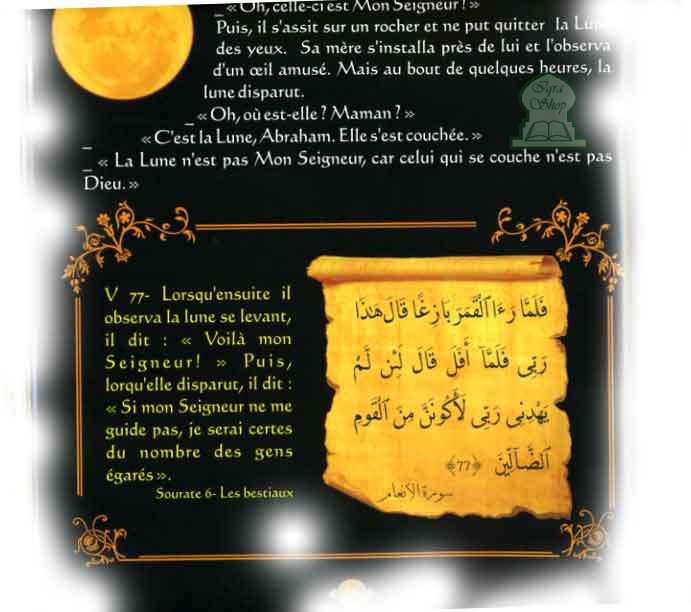 _ « Oh, celle-ci est Mon Seigneur ! »
Puis, il s'assit sur un rocher et ne put quitter la Lune
des yeux. Sa mère s'installa près de lui et l'observa
d'un œil amusé. Mais au bout de quelques heures, la
lune disparut.
_ « Oh, où est-elle ? Maman ? »
_ « C'est la Lune, Abraham. Elle s'est couchée. »
_ « La Lune n'est pas Mon Seigneur, car celui qui se couche n'est pas
Dieu. »
Iqra
Shop
V 77- Lorsqu'ensuite il
observa la lune se levant,
il dit : « Voilà mon
Seigneur! » Puis,
lorqu'elle disparut, il dit :
« Si mon Seigneur ne me
guide pas, je serai certes
du nombre des gens
égarés ».
Sourate 6- Les bestiaux
فَلَمَّا رَءَا ٱلْقَمَرَ بَازِغًا قَالَ هَٰذَا
رَبِّى فَلَمَّآ أَفَلَ قَالَ لَئِن لَّمْ
يَهْدِنِى رَبِّى لَأَكُونَنَّ مِنَ ٱلْقَوْمِ
ٱلضَّآلِّينَ ﴿77﴾
سورة الأنعام